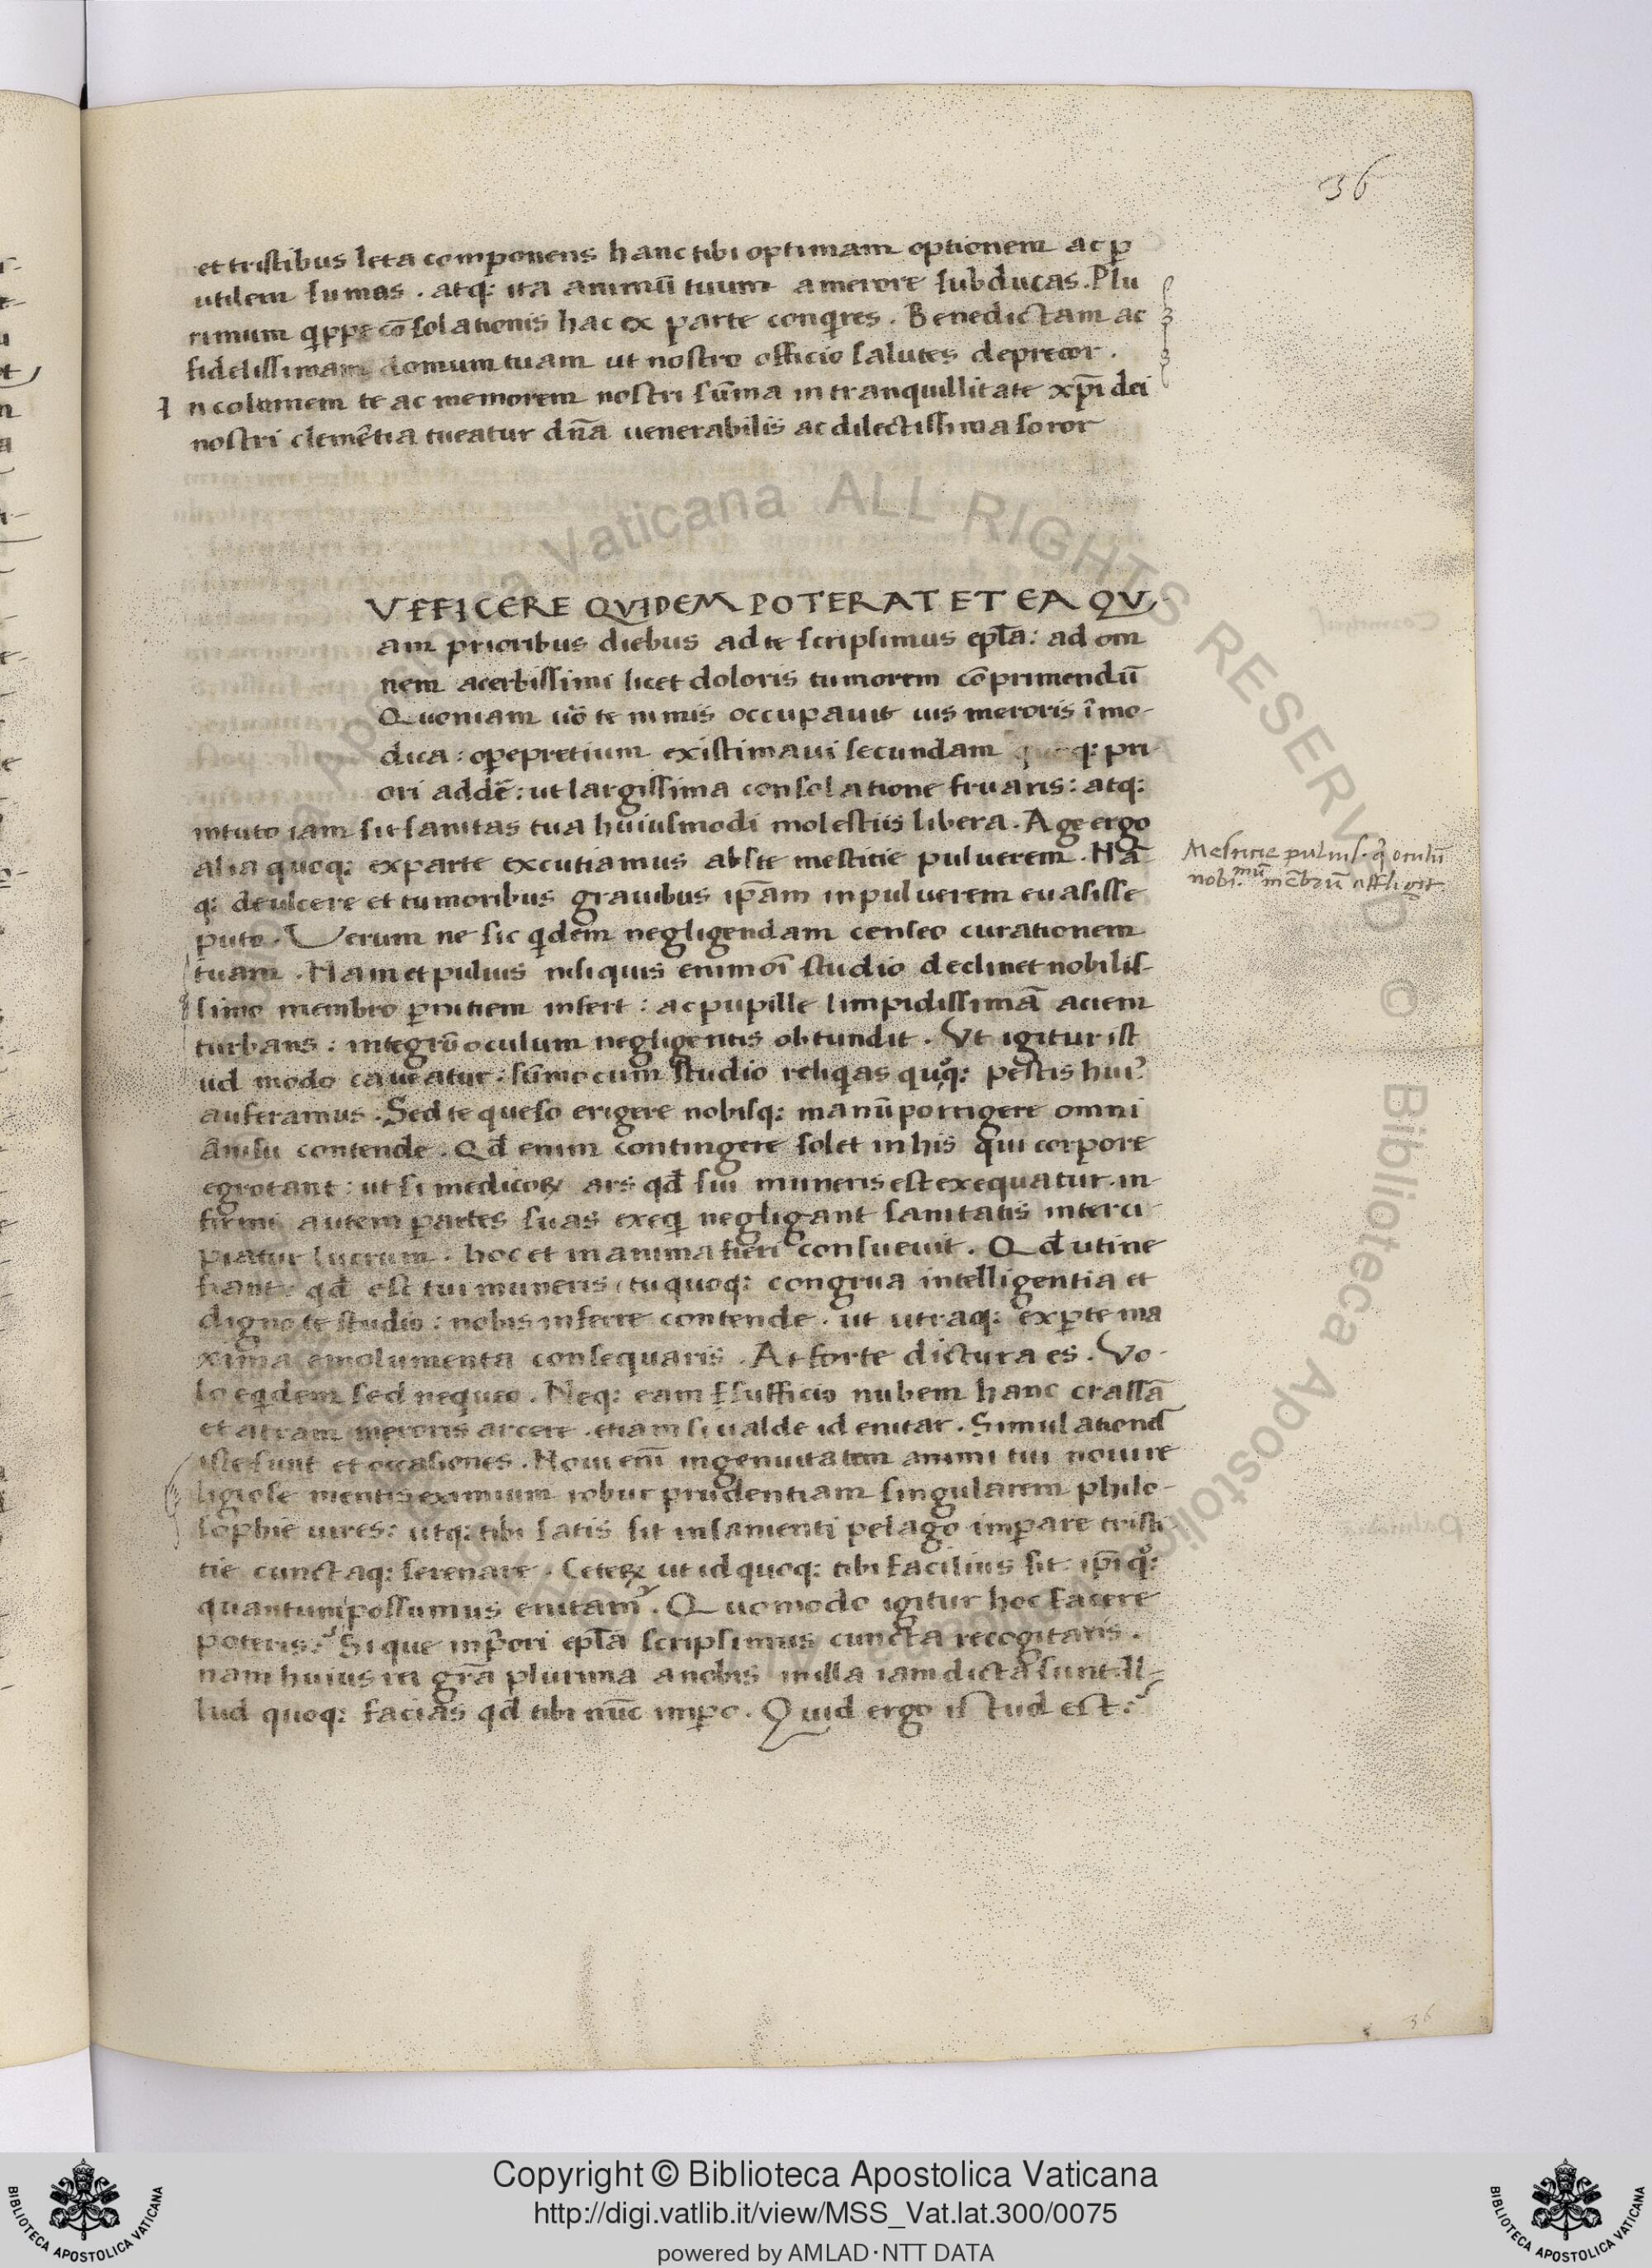 36
et tristibus leta componens hanc tibi optimam optionem ac p̱
utilem sumas . atq; ita animū tuum a merore subducas . Plu
rimum qippe cōsolationis hac ex parte conqires . Benedictam ac
fidelissimam domum tuam ut nostro officio salutes deprecor .
I ncolumem te ac memorem nostri sūma in tranquillitate xp̄i dei
nostri clemētia tueatur dn̄a uenerabilis ac dilectissima soror
VFFICERE QVIDEM POTERAT ET EA QV
am prioribus diebus ad te scripsimus ep̄la : ad om
nem acerbissimi licet doloris tumorem cōprimendū
Quoniam uō te nimis occupauit uis meroris īmo-
dica : op̱epretium existimaui secundam quoq; pri
ori addē : ut largissima consolatione fruaris : atq;
in tuto iam sit sanitas tua huiusmodi molestiis libera . Age ergo
alia quoq; ex parte excutiamus abs te mestitie puluerem . Nā
q; de ulcere et tumoribus grauibus ip̄am in puluerem euasisse
puto . Verum ne sic qidem negligendam censeo curationem
tuam . Nam et puluis nisi quis enim oī studio declinet nobilis-
simo membro p̱nitiem infert : ac pupille limpidissimā aciem
turbans : integrū oculum negligentis obtundit . Vt igitur ist
ud modo caueatur : sūmo cum studio reliqias quoq; pestis hui᾽
auferamus . Sed te queso erigere nobisq; manū porrigere omni
ānisu contende . Qd̄ enim contingere solet in his qui corpore
egrotant : ut si medicoꝝ ars qd̄ sui muneris est exequatur . in-
firmi autem partes suas exeqi negligant sanitatis interci-
piatur lucrum . hoc et in anima fieri consueuit . Qd̄ ut ine
fiant : qd̄ est tui muneris tu quoq; congrua intelligentia et
digno te studio : nobis inferre contende . ut utraq; ex p̱te ma
xima emolumenta consequaris . At forte dictura es . Vo-
lo eqidem sed nequeo . Neq; eam sufficio nubem hanc crassā
et atram meroris arcere . etiam si ualde id enitar . Simulationes
iste sunt et occasiones . Noui enī ingenuitatem animi tui noui re
ligiose mentis eximium robur prudentiam singularem philo-
sophie uires : utq; tibi satis sit insanienti pelago imp̱are tristi
tie cunctaq; serenare . Ceteꝝ ut id quoq; tibi facilius sit ip̄i qͦq;
quantum possumus enitam᾽ . Quomodo igitur hoc facere
poteris ? Si que in p̄ori ep̄la scripsimus cuncta recogitaris .
nam huius rei gr̄a plurima a nobis in illa iam dicta sunt . Il-
lud quoq; facias qd̄ tibi nūc imp̱o . Quid ergo istud est ?
Mestitie puluis . q̇ oculū
nobi.mū mēbrū affligit
36
Copyright © Biblioteca Apostolica Vaticana
http://digi.vatlib.it/view/MSS_Vat.lat.300/0075
powered by AMLAD·NTT DATA